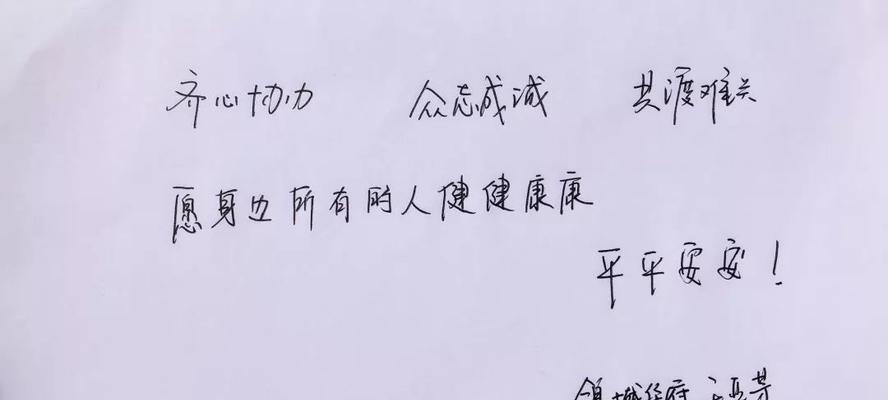 齐心协力 众志成城 共渡难关
愿身边所有的人健健康康
平平安安！
领城华府